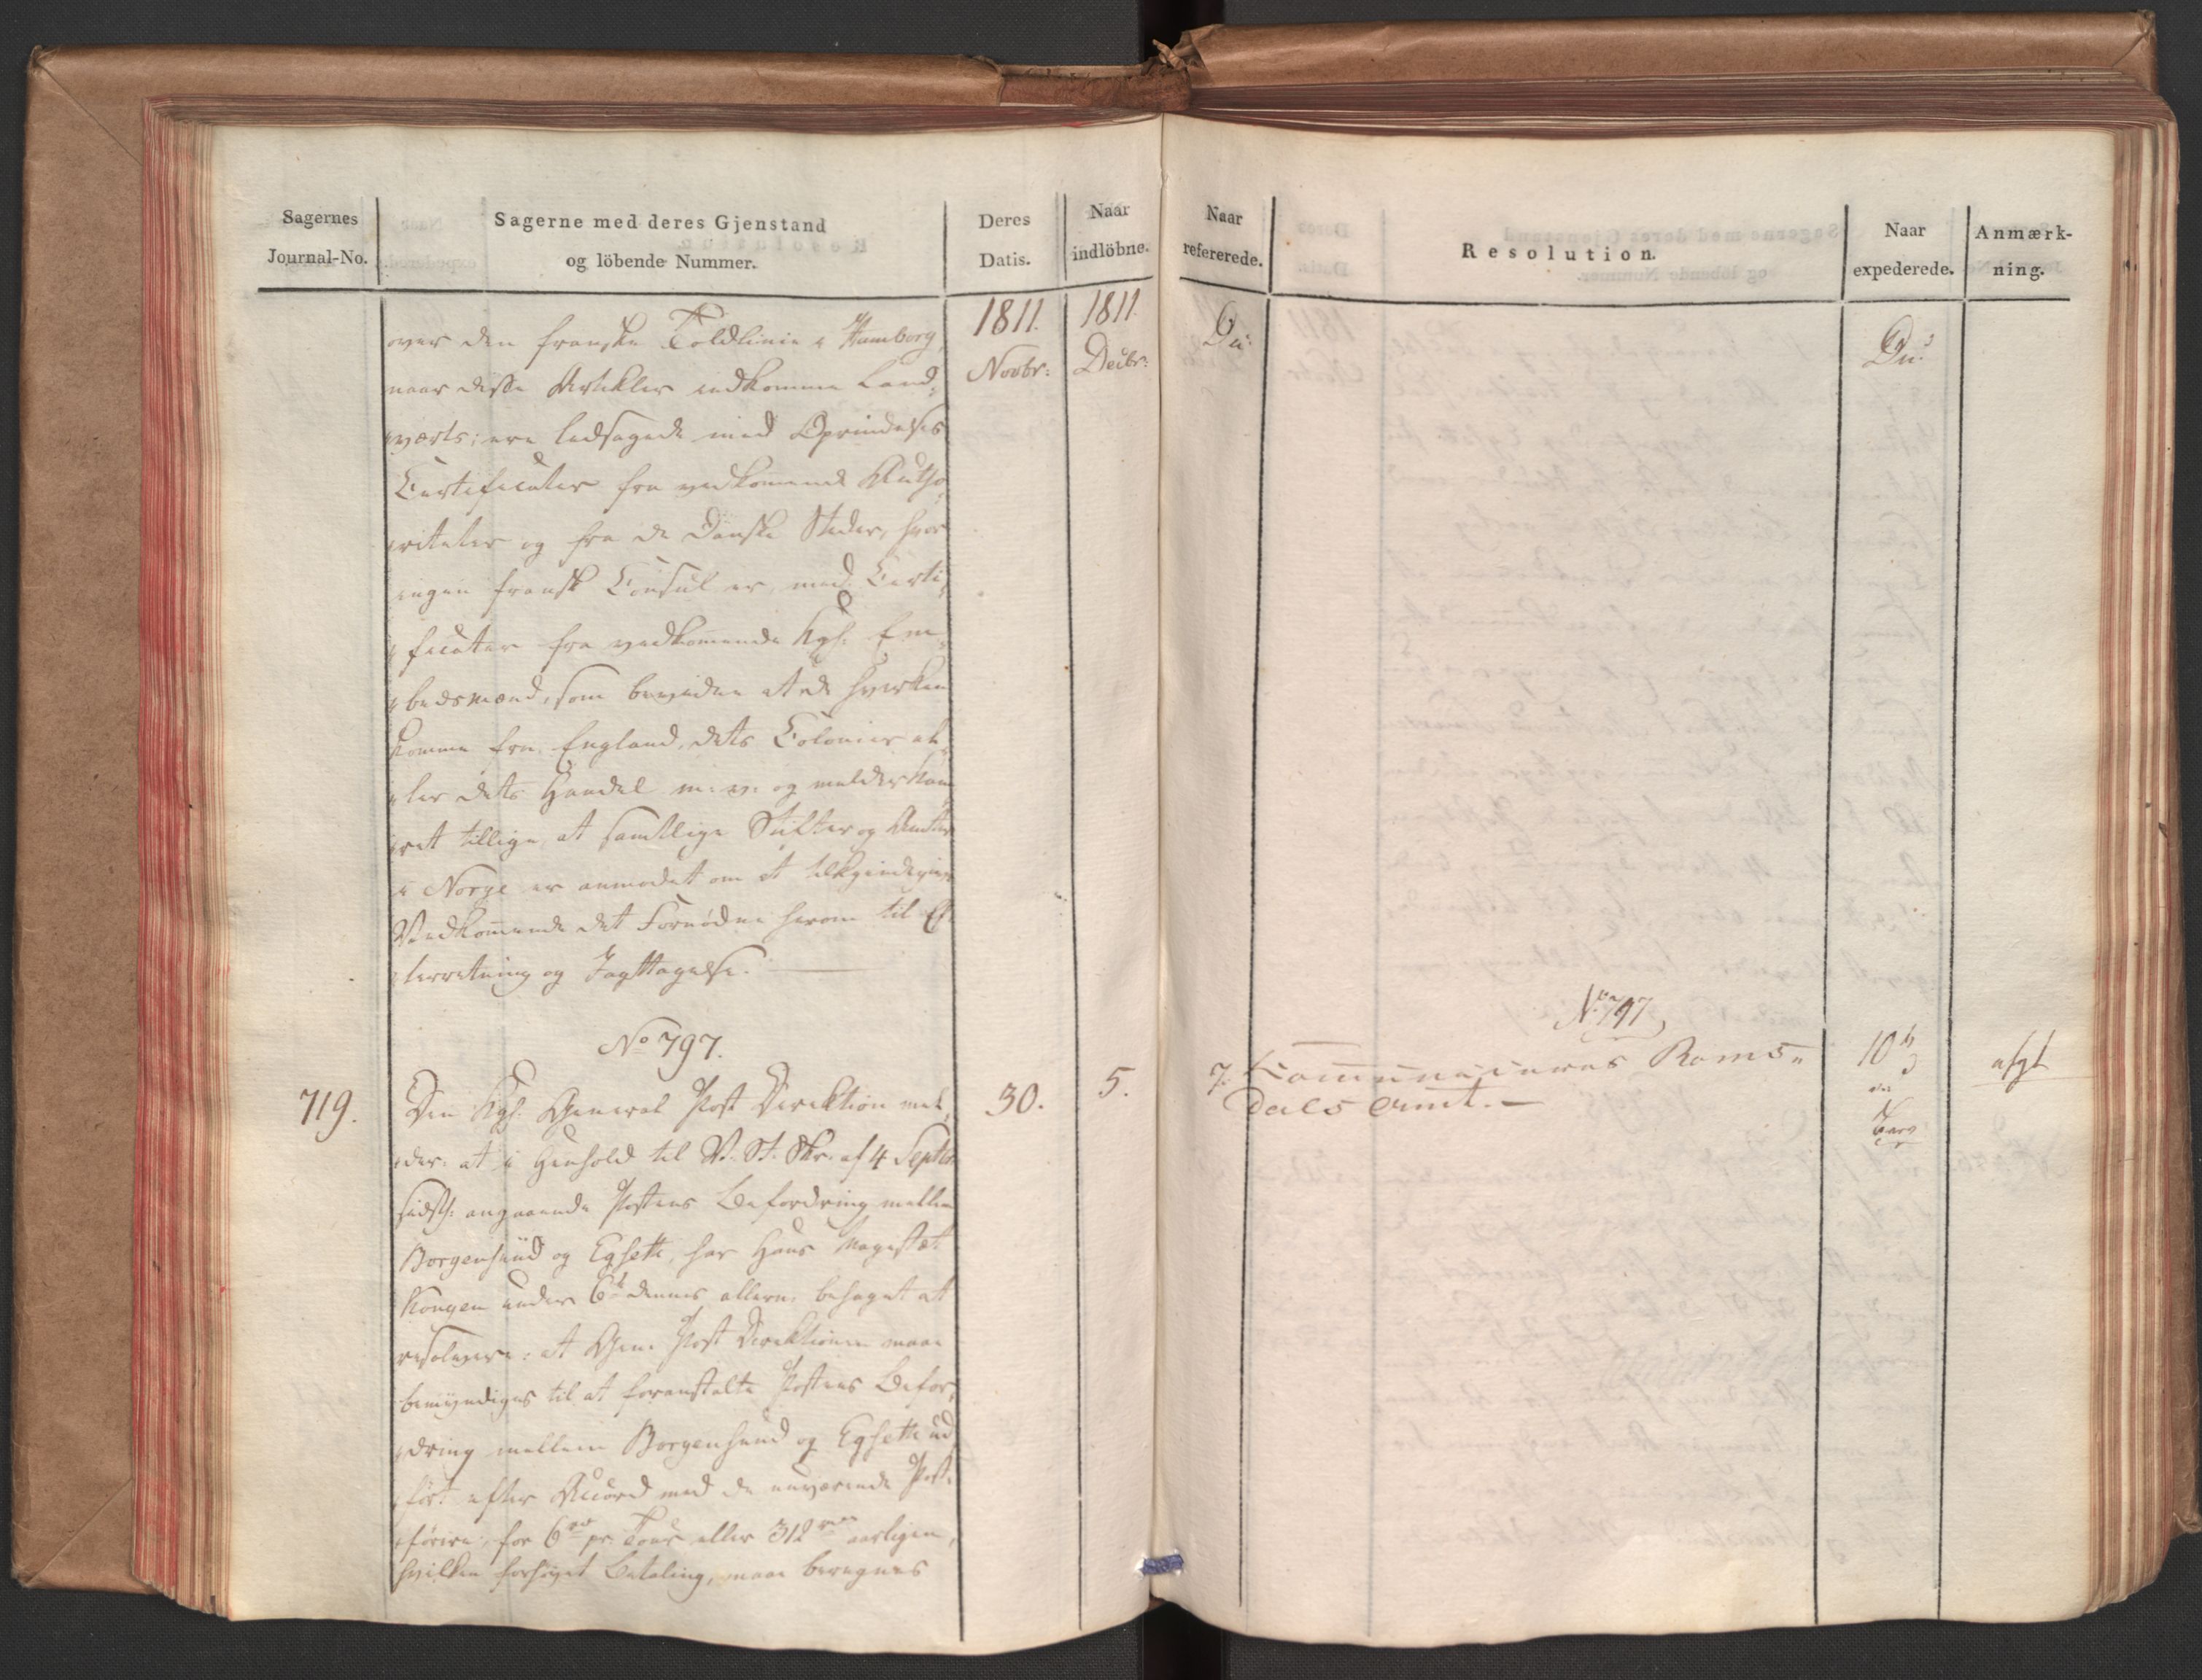 Sagernes
Journal-No.
Sagerne med deres Gjenstand
og löbende Nummer.
Deres
Datis.
Naar
indlöbne.
Naar
refererede.
Resolution.
Naar
expederede.
Anmærk-
ning.
1811.
Novbr:
1811
Decbr:
Do:
Do:
over den franske Toldlinie i Hamborg,
naar disse Artikler indkomme Land-
værts; ere ledsagede med Oprindelses
Certificater fra vedkommende Autho-
riteter og fra de Danske Steder, hvor
ingen fransk Consul er, med Certi-
ficater fra vedkommende Kgl. Em-
bedsmænd, som bevidne at de hverken
komme fra England, dets Colonier el-
ler dets Handel m: v: og melder
tillige at samtlige Stifter og Amter
i Norge er anmodet om at tilkjendegive
Vedkommende det Fornødne herom til Ef-
terretning og Jagttagelse.
No 797.
719.
Den Kgl. General Post Direktion mel-
der: at i Henhold til V. St. Skr. af 4 Septbr
sidstl: angaaende Postens Befordring mellem
Borgensund og Egsette, har Hans Majestæt
Kongen under 6t dennes allern. behaget at
resolvere: at Gen. Post Direktionen maae
bemyndiges til at foranstalte Postens Befor-
dring mellem Borgensund og Egsette ud-
ført efter Accord med de nuværende Post-
førere, for 6 rd pr. Tour eller 312 rd aarligen,
hvilken forhøiet Betaling, maae beregnes
30.
5.
7.
No 797
Communiceres Roms-
dals Amt.
10